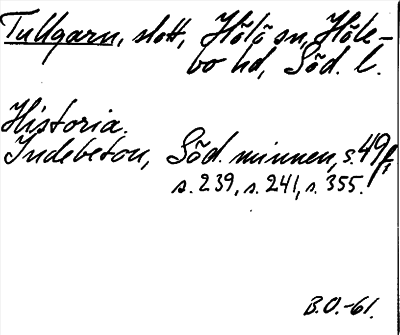 Tullgarn, slott, Hölö sn, Höle-
bo hd, Söd. l.
Historia.
Indebetou, Söd. minnen, s. 49 f,
s. 239, s. 241, s. 355.
B.O.-61.